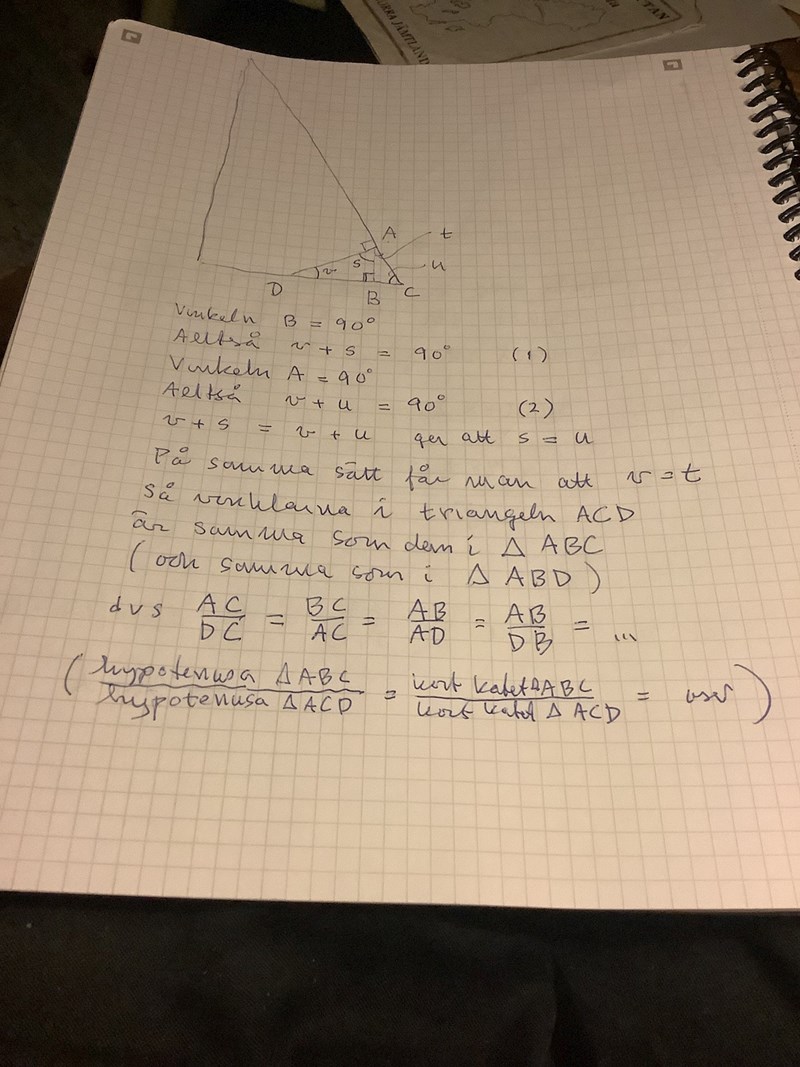 RRA JÄMTLAND
UTAN
A
t
s
u
v
D
B
C
Vinkeln B = 90°
Aeltså v + s = 90° (1)
Vinkeln A = 90°
Aeltså v + u = 90° (2)
v + s = v + u ger att s = u
På samma sätt får man att v = t
Så vinklarna i triangeln ACD
är samma som dem i Δ ABC
(och samma som i Δ ABD)
dvs AC/DC = BC/AC = AB/AD = AB/DB = ...
(hypotenusa Δ ABC/hypotenusa Δ ACD = kort katet Δ ABC/kort katet Δ ACD = osv)